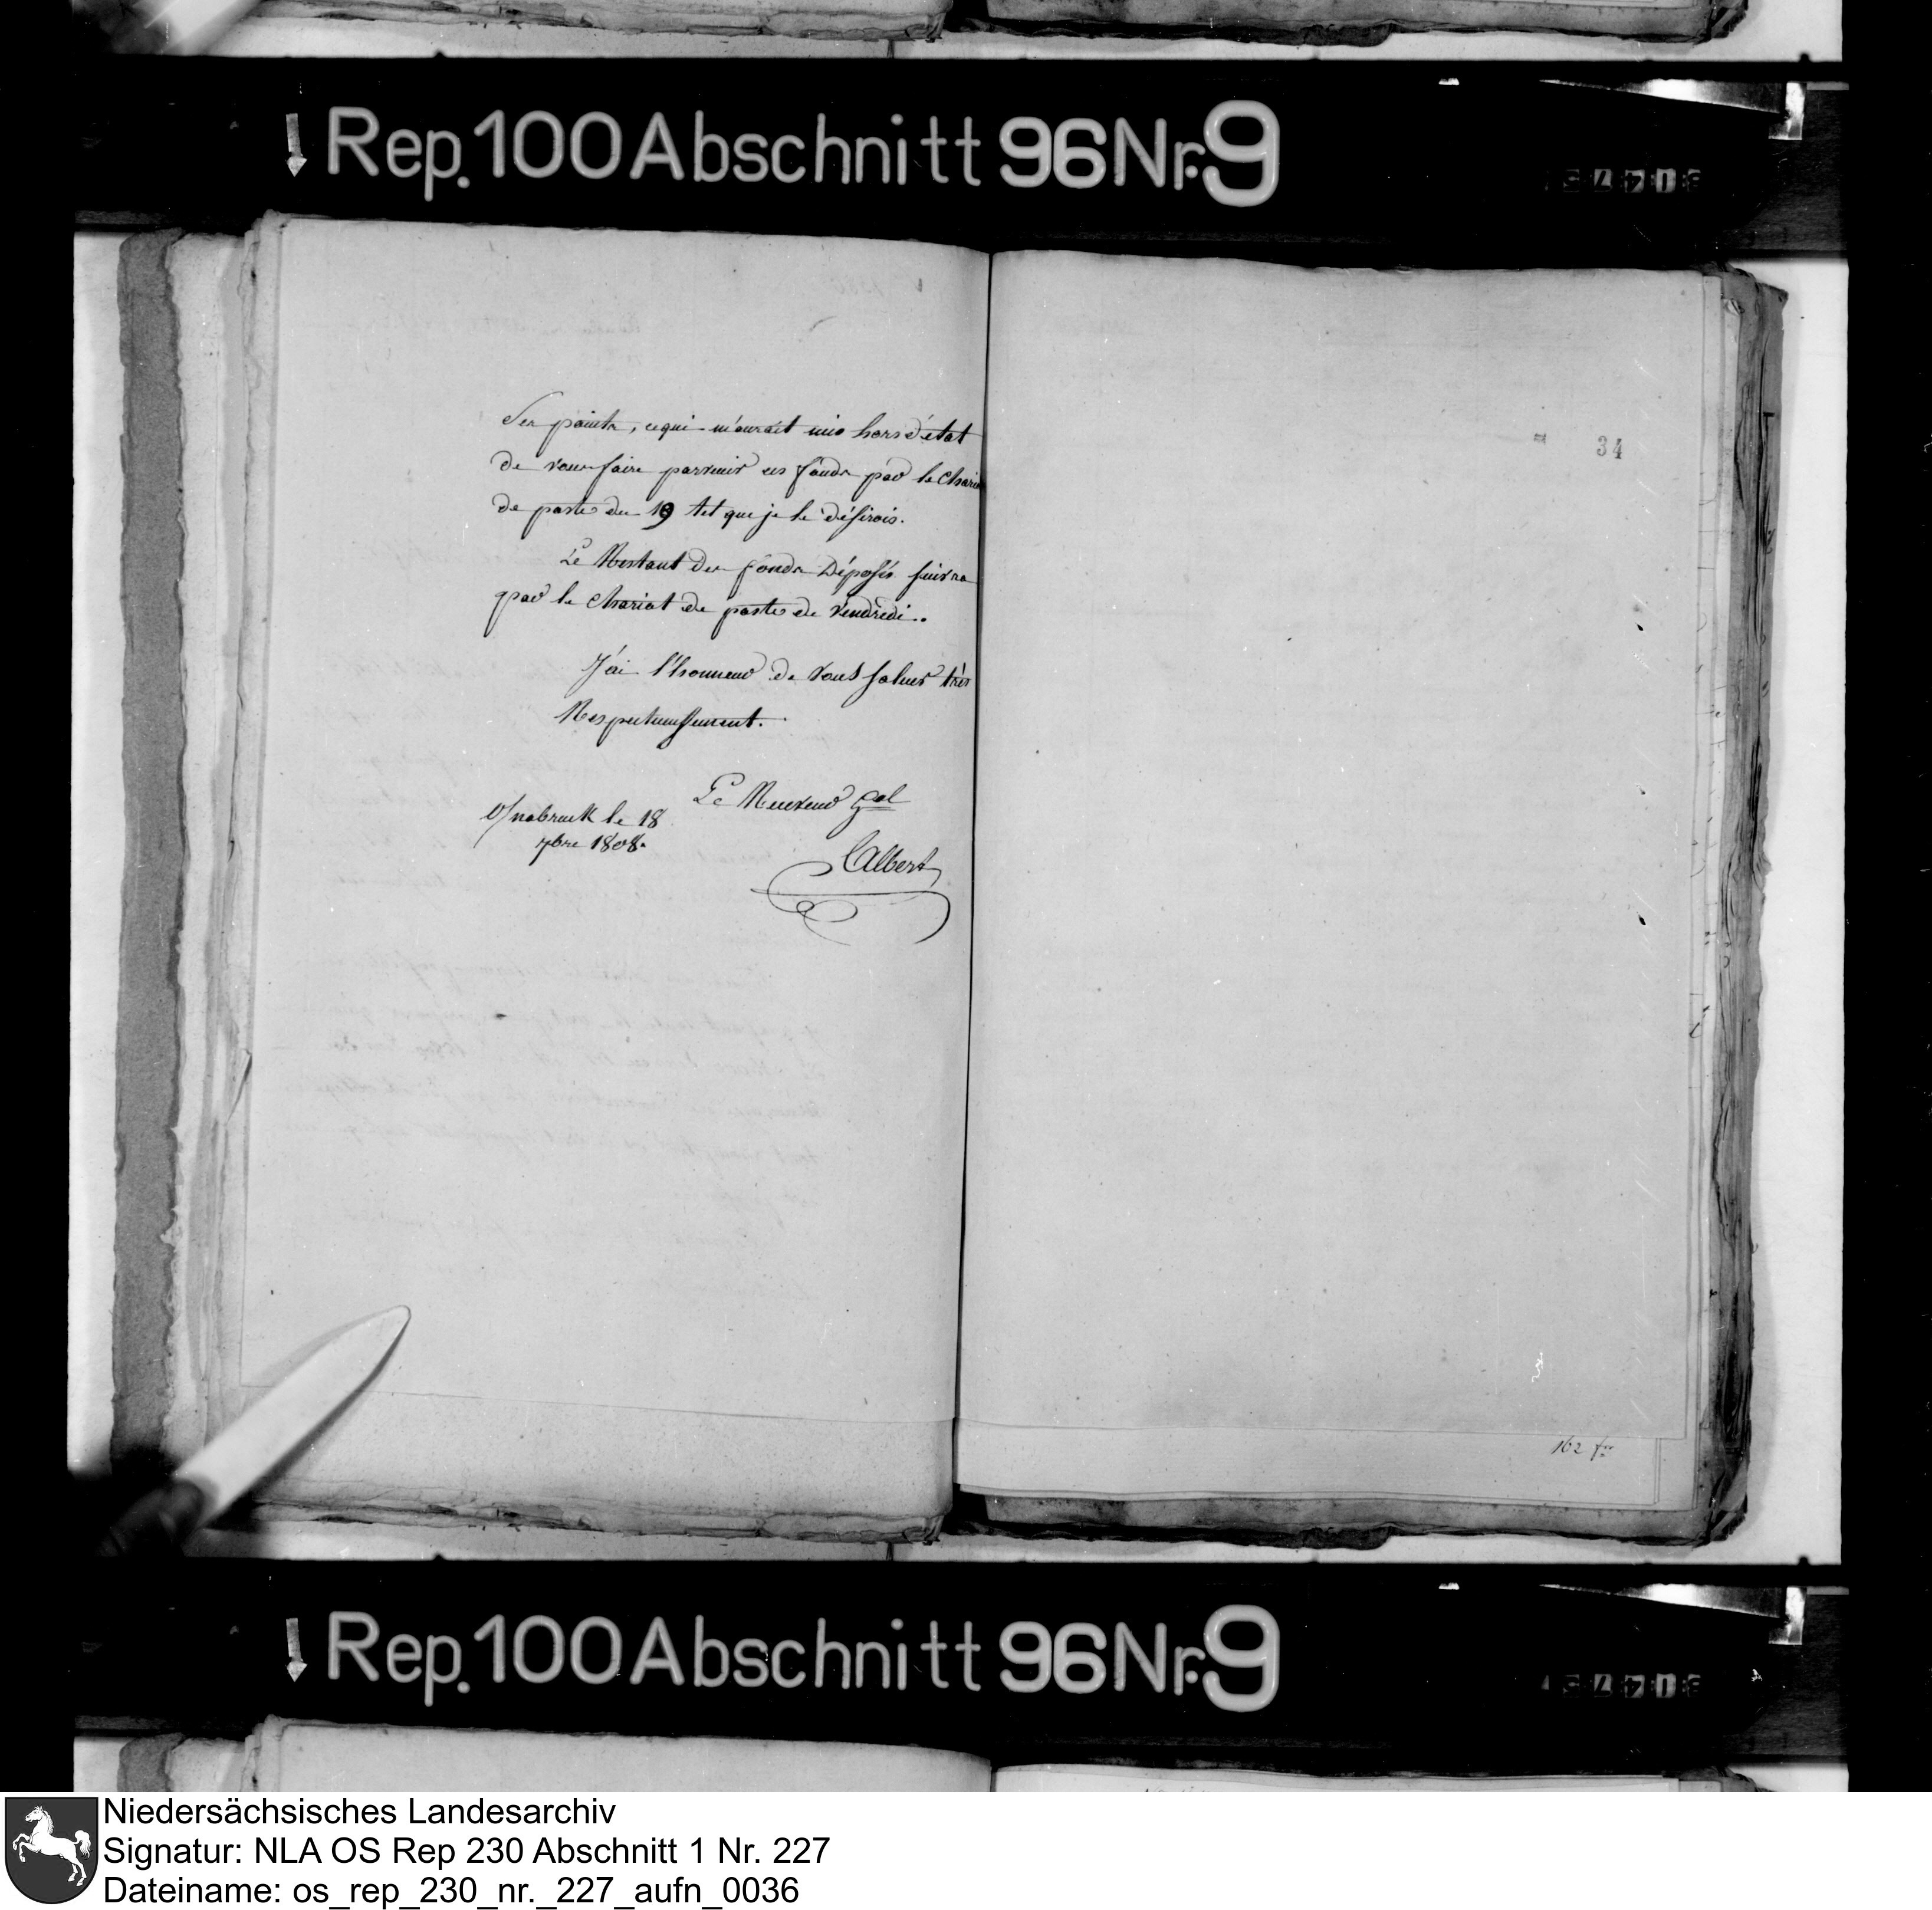 Rep. 100 Abschnitt 96 Nr. 9
Ses points, ce qui m'aurait mis hors d'état
de vous faire parvenir ces fonds par le chario
de poste du 19 tel que je le désirois.
Le Restant des fonds Déposés suivra
par le chariot de poste de vendredi..
J'ai l'honneur de vous saluer très
Respectueusement.
Le Receveur gal
Osnabruck le 18
7bre 1808.
CAlbert
34
162 fr
Rep. 100 Abschnitt 96 Nr. 9
Niedersächsisches Landesarchiv
Signatur: NLA OS Rep 230 Abschnitt 1 Nr. 227
Dateiname: os_rep_230_nr._227_aufn_0036